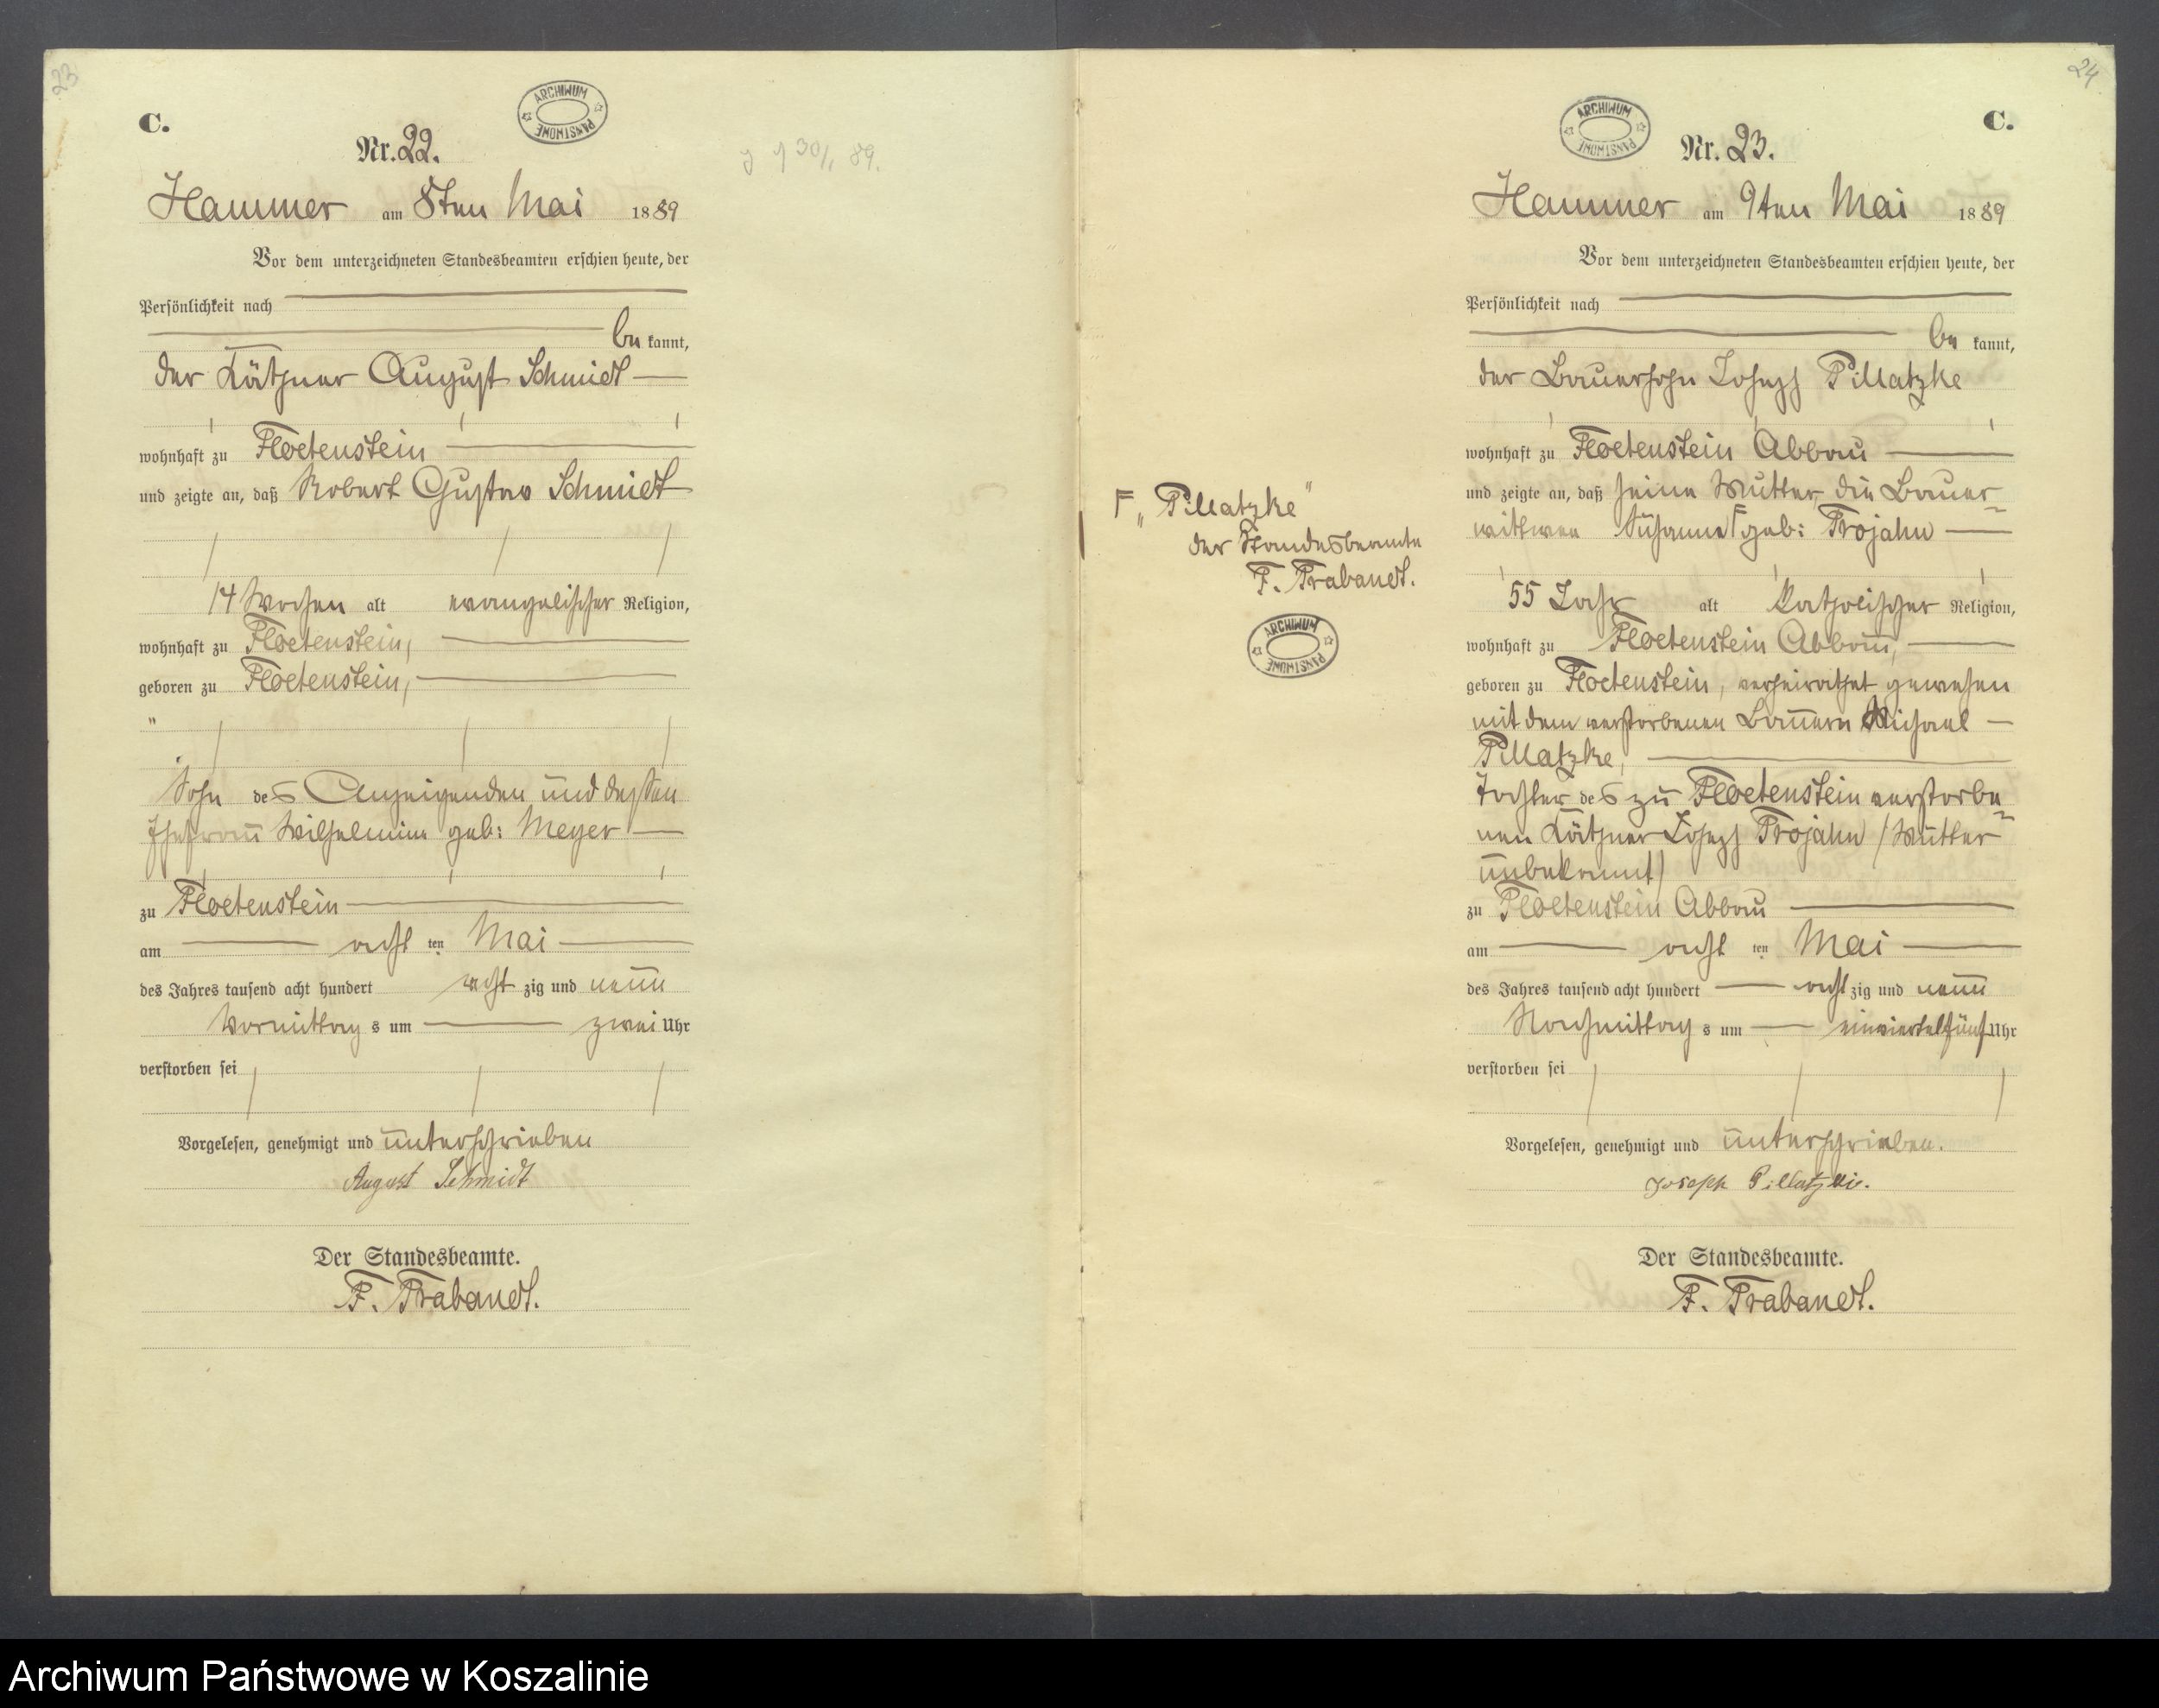 23
C.
ARCHIWUM PAŃSTWOWE
Nr. 22.
Hammer am 8ten Mai 1889
Vor dem unterzeichneten Standesbeamten erschien heute, der
Persönlichkeit nach
be kannt,
der Käthner August Schmidt
wohnhaft zu Floetenstein
und zeigte an, daß Robert Gustav Schmidt
14 Wochen alt evangelischer Religion,
wohnhaft zu Floetenstein,
geboren zu Floetenstein,
Sohn des Anzeigenden und dessen
Ehefrau Wilhelmine geb: Meyer
zu Floetenstein
am acht ten Mai
des Jahres tausend acht hundert acht zig und neun
Vormittag s um zwei Uhr
verstorben sei
Vorgelesen, genehmigt und unterschrieben
August Schmidt
Der Standesbeamte.
F. Trabandt.
30/ 89.
24
C.
ARCHIWUM PAŃSTWOWE
Nr. 23.
Hammer am 9ten Mai 1889
Vor dem unterzeichneten Standesbeamten erschien heute, der
Persönlichkeit nach
be kannt,
der Bauersohn Joseph Pillatzke
wohnhaft zu Floetenstein Abbau
und zeigte an, daß seine Mutter, die Bauer=
wittwee Susanna Γ geb: Trojahn
Γ „Pillatzke"
der Standesbeamte
F. Trabandt.
ARCHIWUM PAŃSTWOWE
55 Jahr alt katholischer Religion,
wohnhaft zu Floetenstein Abbau,
geboren zu Floetenstein, verheirathet gewesen
mit dem verstorbenen Bauern Michael
Pillatzke,
Tochter des zu Floetenstein verstorbe=
nen Käthner Joseph Trojahn /Mutter
unbekannt/
zu Floetenstein Abbau
am acht ten Mai
des Jahres tausend acht hundert acht zig und neun
Nachmittag s um einviertelfünf Uhr
verstorben sei
Vorgelesen, genehmigt und unterschrieben.
Joseph Pillatzke.
Der Standesbeamte.
F. Trabandt.
Archiwum Państwowe w Koszalinie